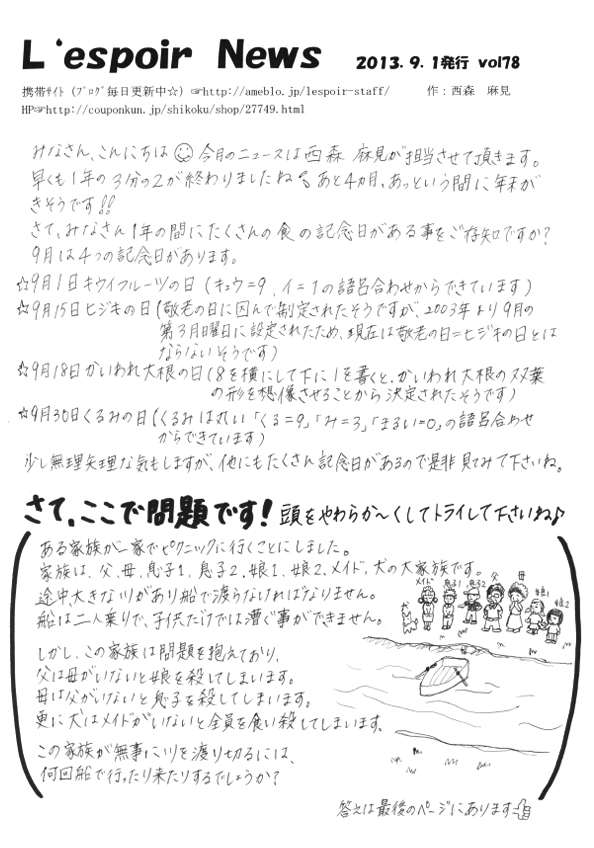 L'espoir News 2013.9.1発行 vol78
携帯ｻｲﾄ（ﾌﾞﾛｸﾞ毎日更新中☆）☞http://ameblo.jp/lespoir-staff/ 作：西森 麻見
HP☞http://couponkun.jp/shikoku/shop/27749.html
みなさん、こんにちは☺今月のニュースは西森 麻見が担当させて頂きます。
早くも1年の3分の2が終わりましたね。あと4カ月、あっという間に年末が
きそうです!!
さて、みなさん1年の間にたくさんの食の記念日がある事をご存知ですか?
9月は4つの記念日があります。
☆9月1日キウイフルーツの日（キュウ=9、イ=1の語呂合わせからできています）
☆9月15日ヒジキの日（敬老の日に因んで制定されたそうですが、2003年より9月の
第3月曜日に設定されたため、現在は敬老の日=ヒジキの日とは
ならないそうです）
☆9月18日かいわれ大根の日（8を横にして下に1を書くと、かいわれ大根の双葉
の形を想像させることから決定されたそうです）
☆9月30日くるみの日（くるみは丸い「くる=9」「み=3」「まるい=0」の語呂合わせ
からできています）
少し無理矢理な気もしますが、他にもたくさん記念日があるので是非見てみて下さいね。
さて、ここで問題です! 頭をやわらか〜くしてトライして下さいね♪
ある家族が一家でピクニックに行くことにしました。
家族は、父、母、息子1、息子2、娘1、娘2、メイド、犬の大家族です。
途中、大きな川があり船で渡らなければなりません。
船は二人乗りで、子供だけでは漕ぐ事ができません。
メイド 息子1 息子2 父 母 娘1 娘2
しかし、この家族は問題を抱えており、
父は母がいないと娘を殺してしまいます。
母は父がいないと息子を殺してしまいます。
更に犬はメイドがいないと全員を食い殺してしまいます。
この家族が無事に川を渡り切るには、
何回船で行ったり来たりするでしょうか?
答えは最後のページにあります☞